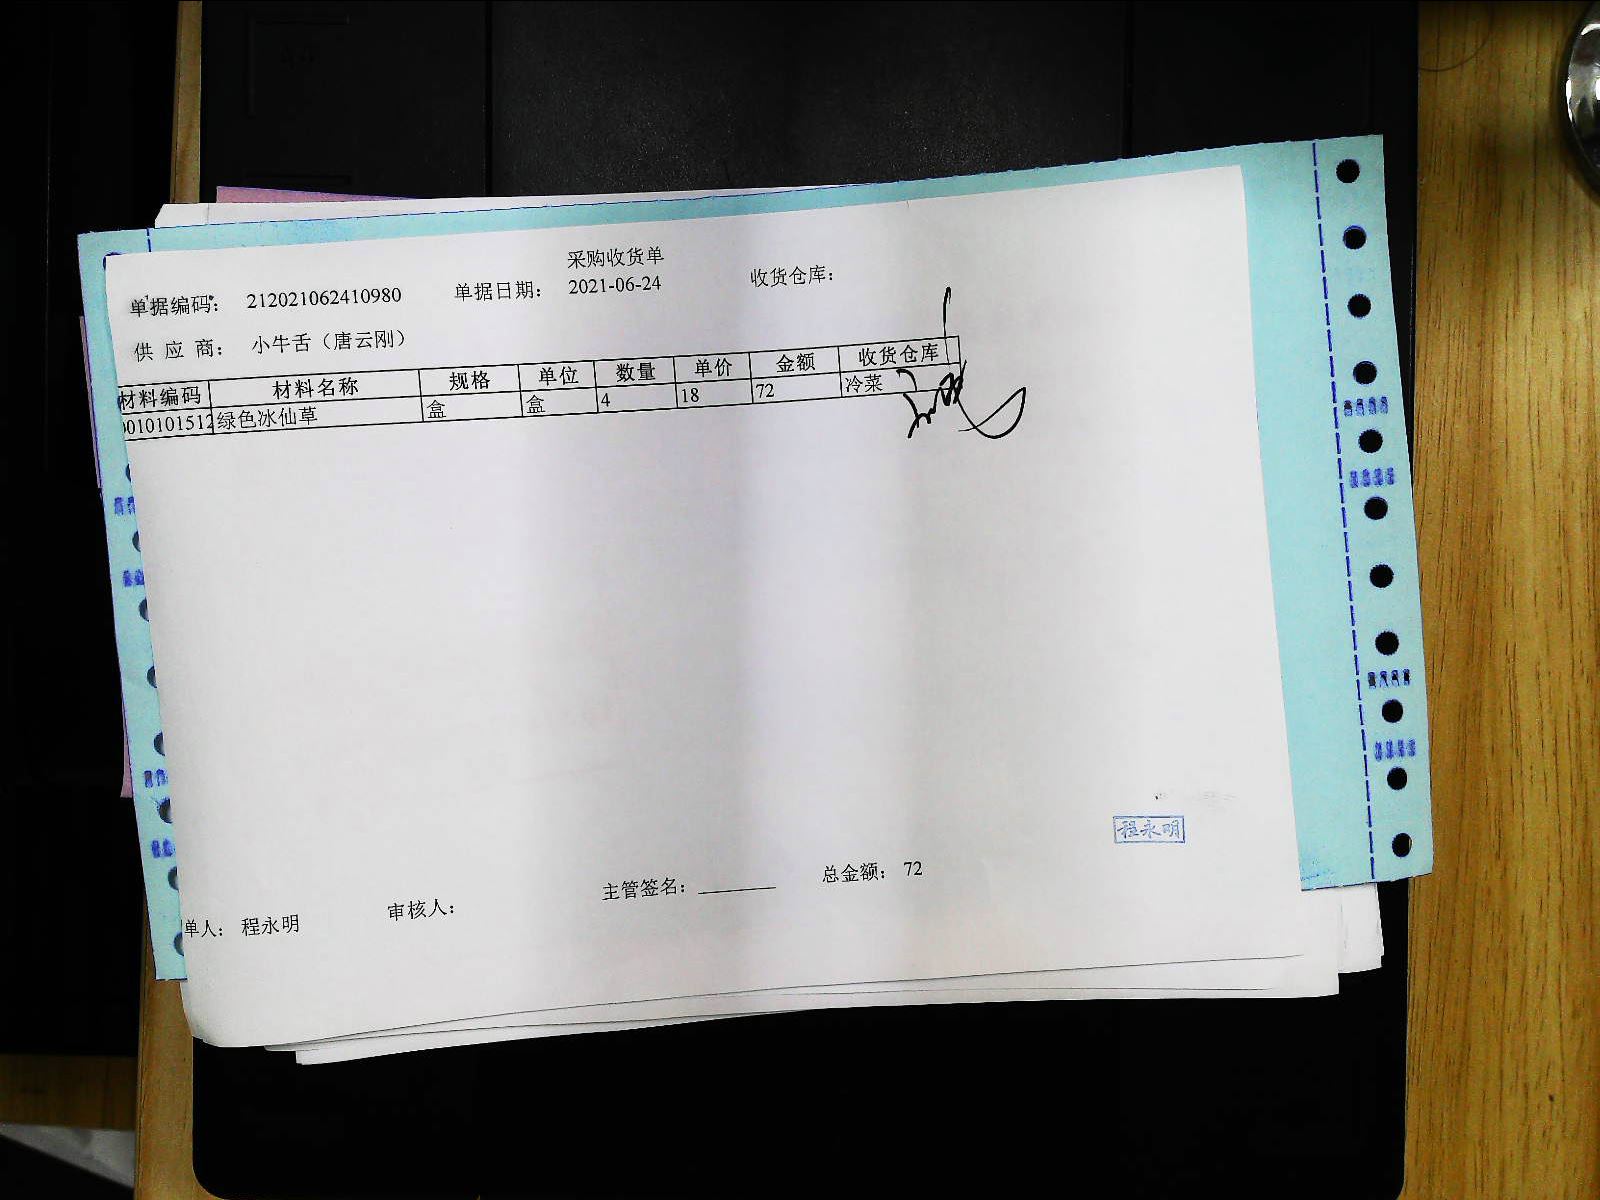 采购收货单
单据编码： 212021062410980 单据日期： 2021-06-24 收货仓库：
供 应 商： 小牛舌（唐云刚）
材料编码 材料名称 规格 单位 数量 单价 金额 收货仓库
0010101512 绿色冰仙草 盒 盒 4 18 72 冷菜
程永明
单人： 程永明 审核人： 主管签名： 总金额： 72